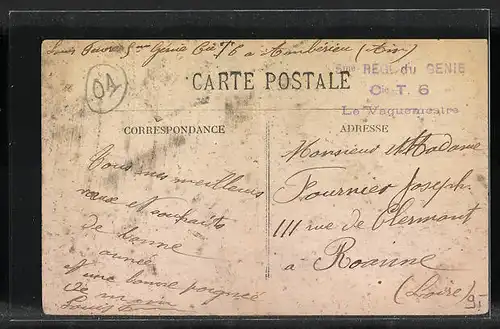 Louis 5me Génie Cie T6 à Ambérieu (Ain)
5me REGt du GENIE
Cie T. 6
Le Vaguemestre
01
CARTE POSTALE
CORRESPONDANCE
ADRESSE
Tous mes meilleurs
vœux et souhaits
de bonne
année
et une bonne poignée
de main
Louis
Monsieur et Madame
Fournier Joseph
111 rue de Clermont
à Roanne
(Loire)